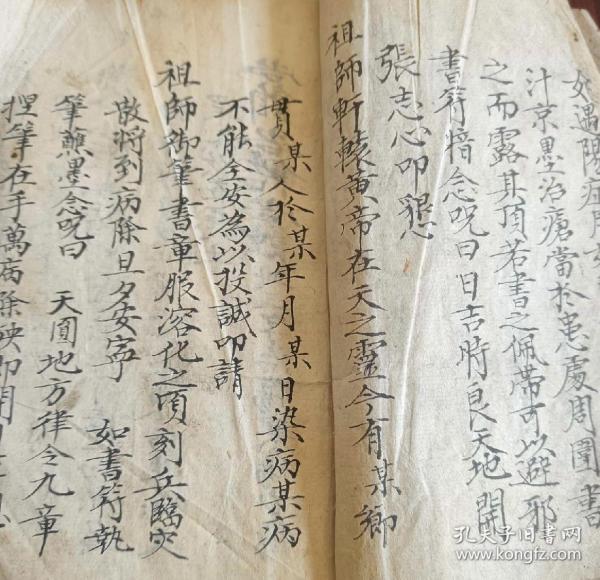 如遇陽症用
汁京墨治瘡當於患處周圍書
之而露其頂若書之佩帶可以避邪
書符暗念咒曰日吉時良天地開
張志心叩懇
祖師軒轅黃帝在天之靈今有某鄉
貫某人於某年月某日染病某病
不能全安為以投誠叩請
祖師御筆書章服溶化之頃刻兵臨灾
散將到病除旦夕安寧 如書符執
筆蘸墨念咒曰 天圓地方律令九章
捏筆在手萬病除殃叩開
孔夫子旧书网
www.kongfz.com